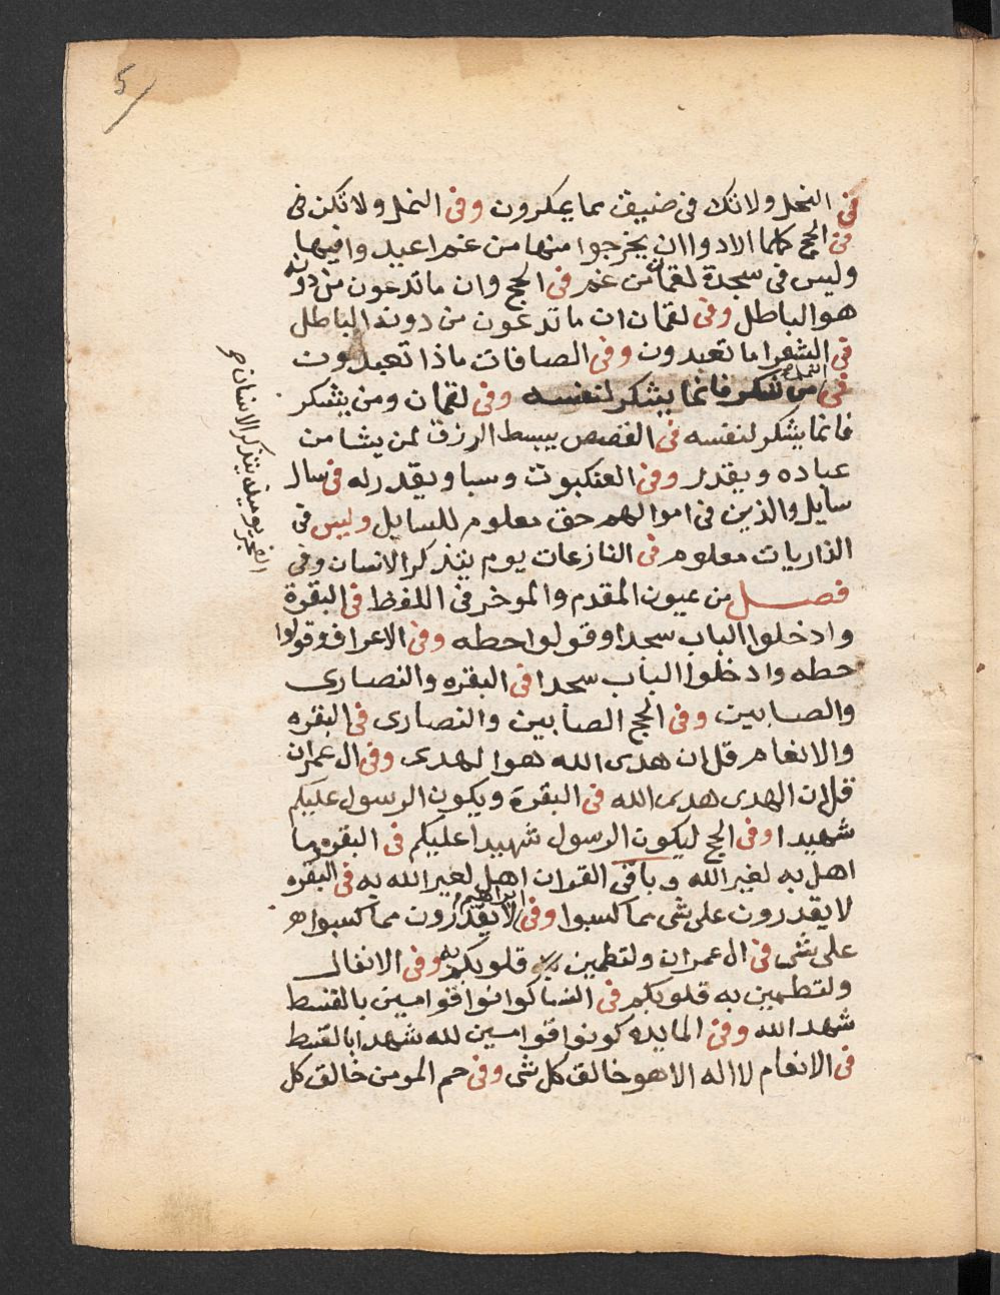 5
في النحل ولا تك في ضيق مما يمكرون وفي النمل ولا تكن في
في الحج كلما ارادوا ان يخرجوا منها من غم اعيدوا فيها
وليس في سجدة لقمان من غم في الحج وان ما تدعون من دونه
هو الباطل وفي لقمان ان ما تدعون من دونه الباطل
في الشعرا ما تعبدون وفي الصافات ماذا تعبدون
في النمل من شكر فانما يشكر لنفسه وفي لقمان ومن يشكر
فانما يشكر لنفسه في القصص يبسط الرزق لمن يشا من
عباده ويقدر وفي العنكبوت وسبا ويقدر له في سال
سايل والذين في اموالهم حق معلوم للسايل وليس في
الذاريات معلوم في النازعات يوم يتذكر الانسان وفي
الفجر يوميذ يتذكر الانسان
فصل من عيون المقدم والموخر في اللفظ في البقرة
وادخلوا الباب سجدا وقولوا حطه وفي الاعراف وقولوا
حطه وادخلوا الباب سجدا في البقره والنصارى
والصابين وفي الحج الصابين والنصارى في البقره
والانعام قل ان هدى الله هو الهدى وفي ال عمران
قل ان الهدى هدى الله في البقرة ويكون الرسول عليكم
شهيدا وفي الحج ليكون الرسول شهيدا عليكم في البقره وما
اهل به لغير الله وباقي القران اهل لغير الله به في البقره
لا يقدرون على شى مما كسبوا وفي ابراهيم لا يقدرون مما كسبوا
على شى في ال عمران ولتطمين قلوبكم به وفي الانفال
ولتطمين به قلوبكم في النسا كونوا قوامين بالقسط
شهدا لله وفي المايده كونوا قوامين لله شهدا بالقسط
في الانعام لا اله الا هو خالق كل شى وفي حم المومن خالق كل